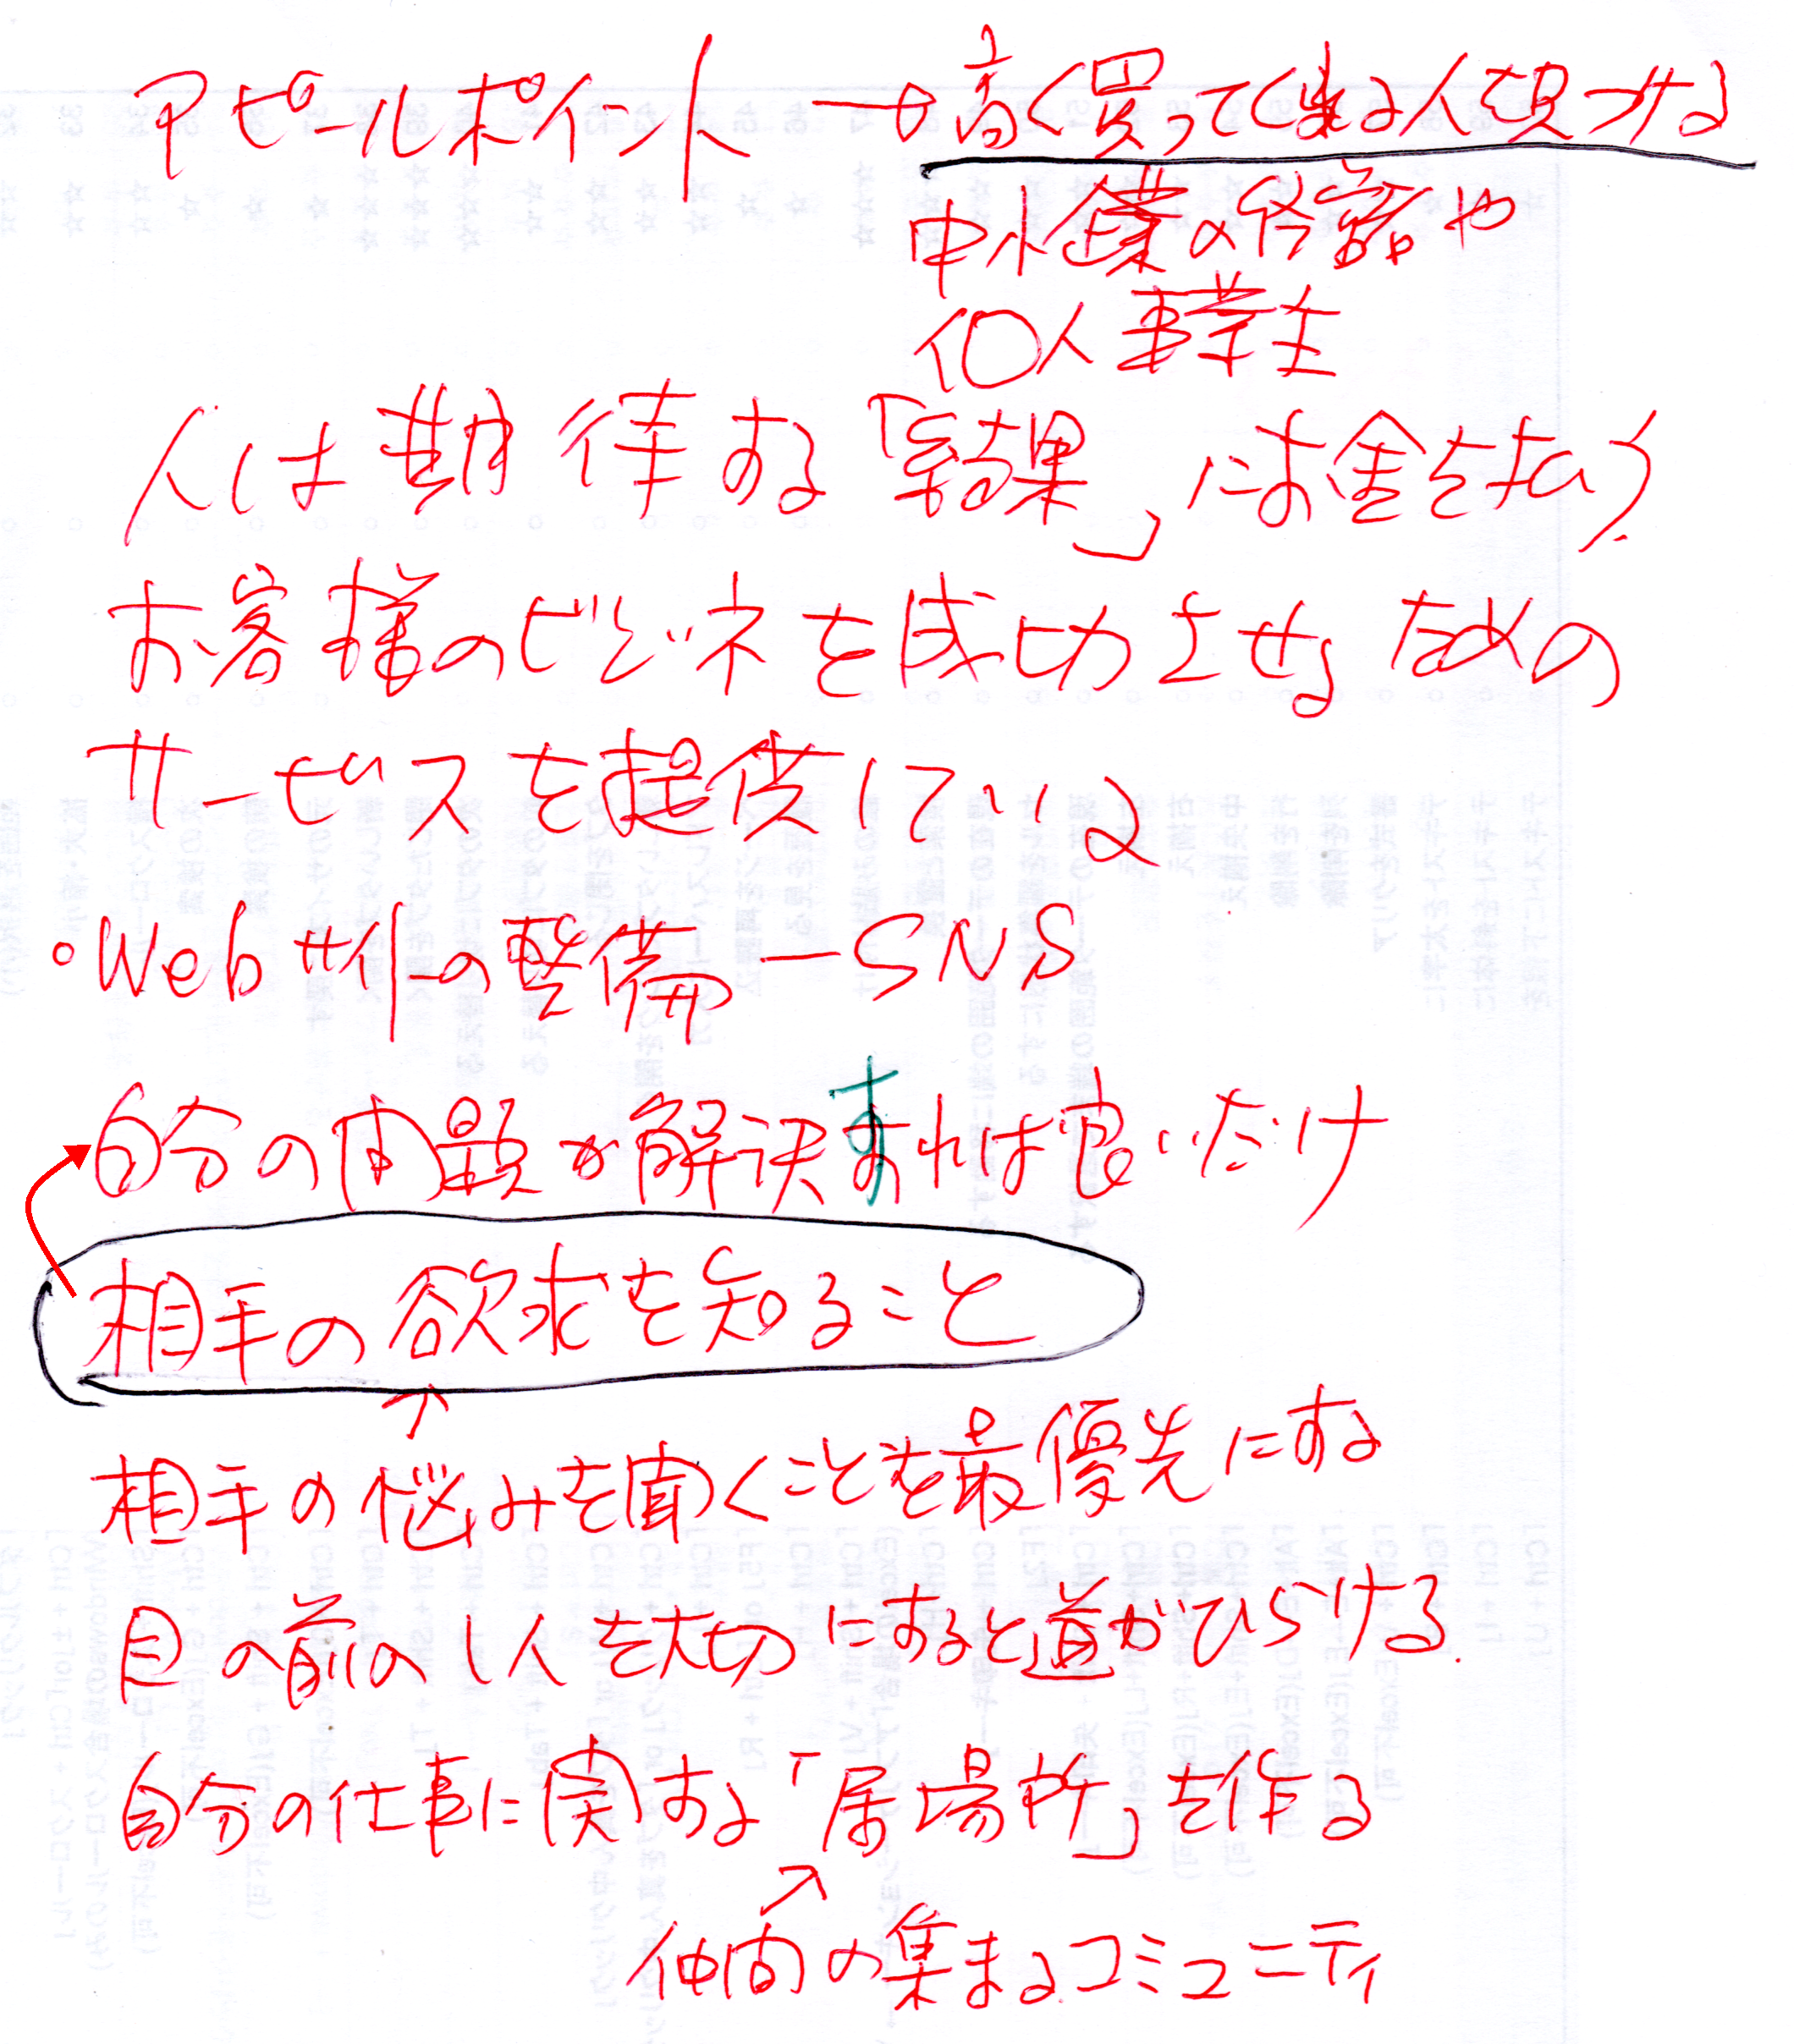 アピールポイント → 高く買ってくれる人を見つける
中小企業の や
個人事業主
人は期待する「結果」にお金を払う
お客様のビジネを成功させるための
サービスを提供している
・Webサイトの整備 ー SNS
自分の問題が解決すれば良いだけ
相手の欲求を知ること
↑
相手の悩みを聞くことを最優先にする
目の前の1人を大切にすると道がひらける.
自分の仕事に関する「居場所」を作る
↗
仲間の集まるコミュニティ